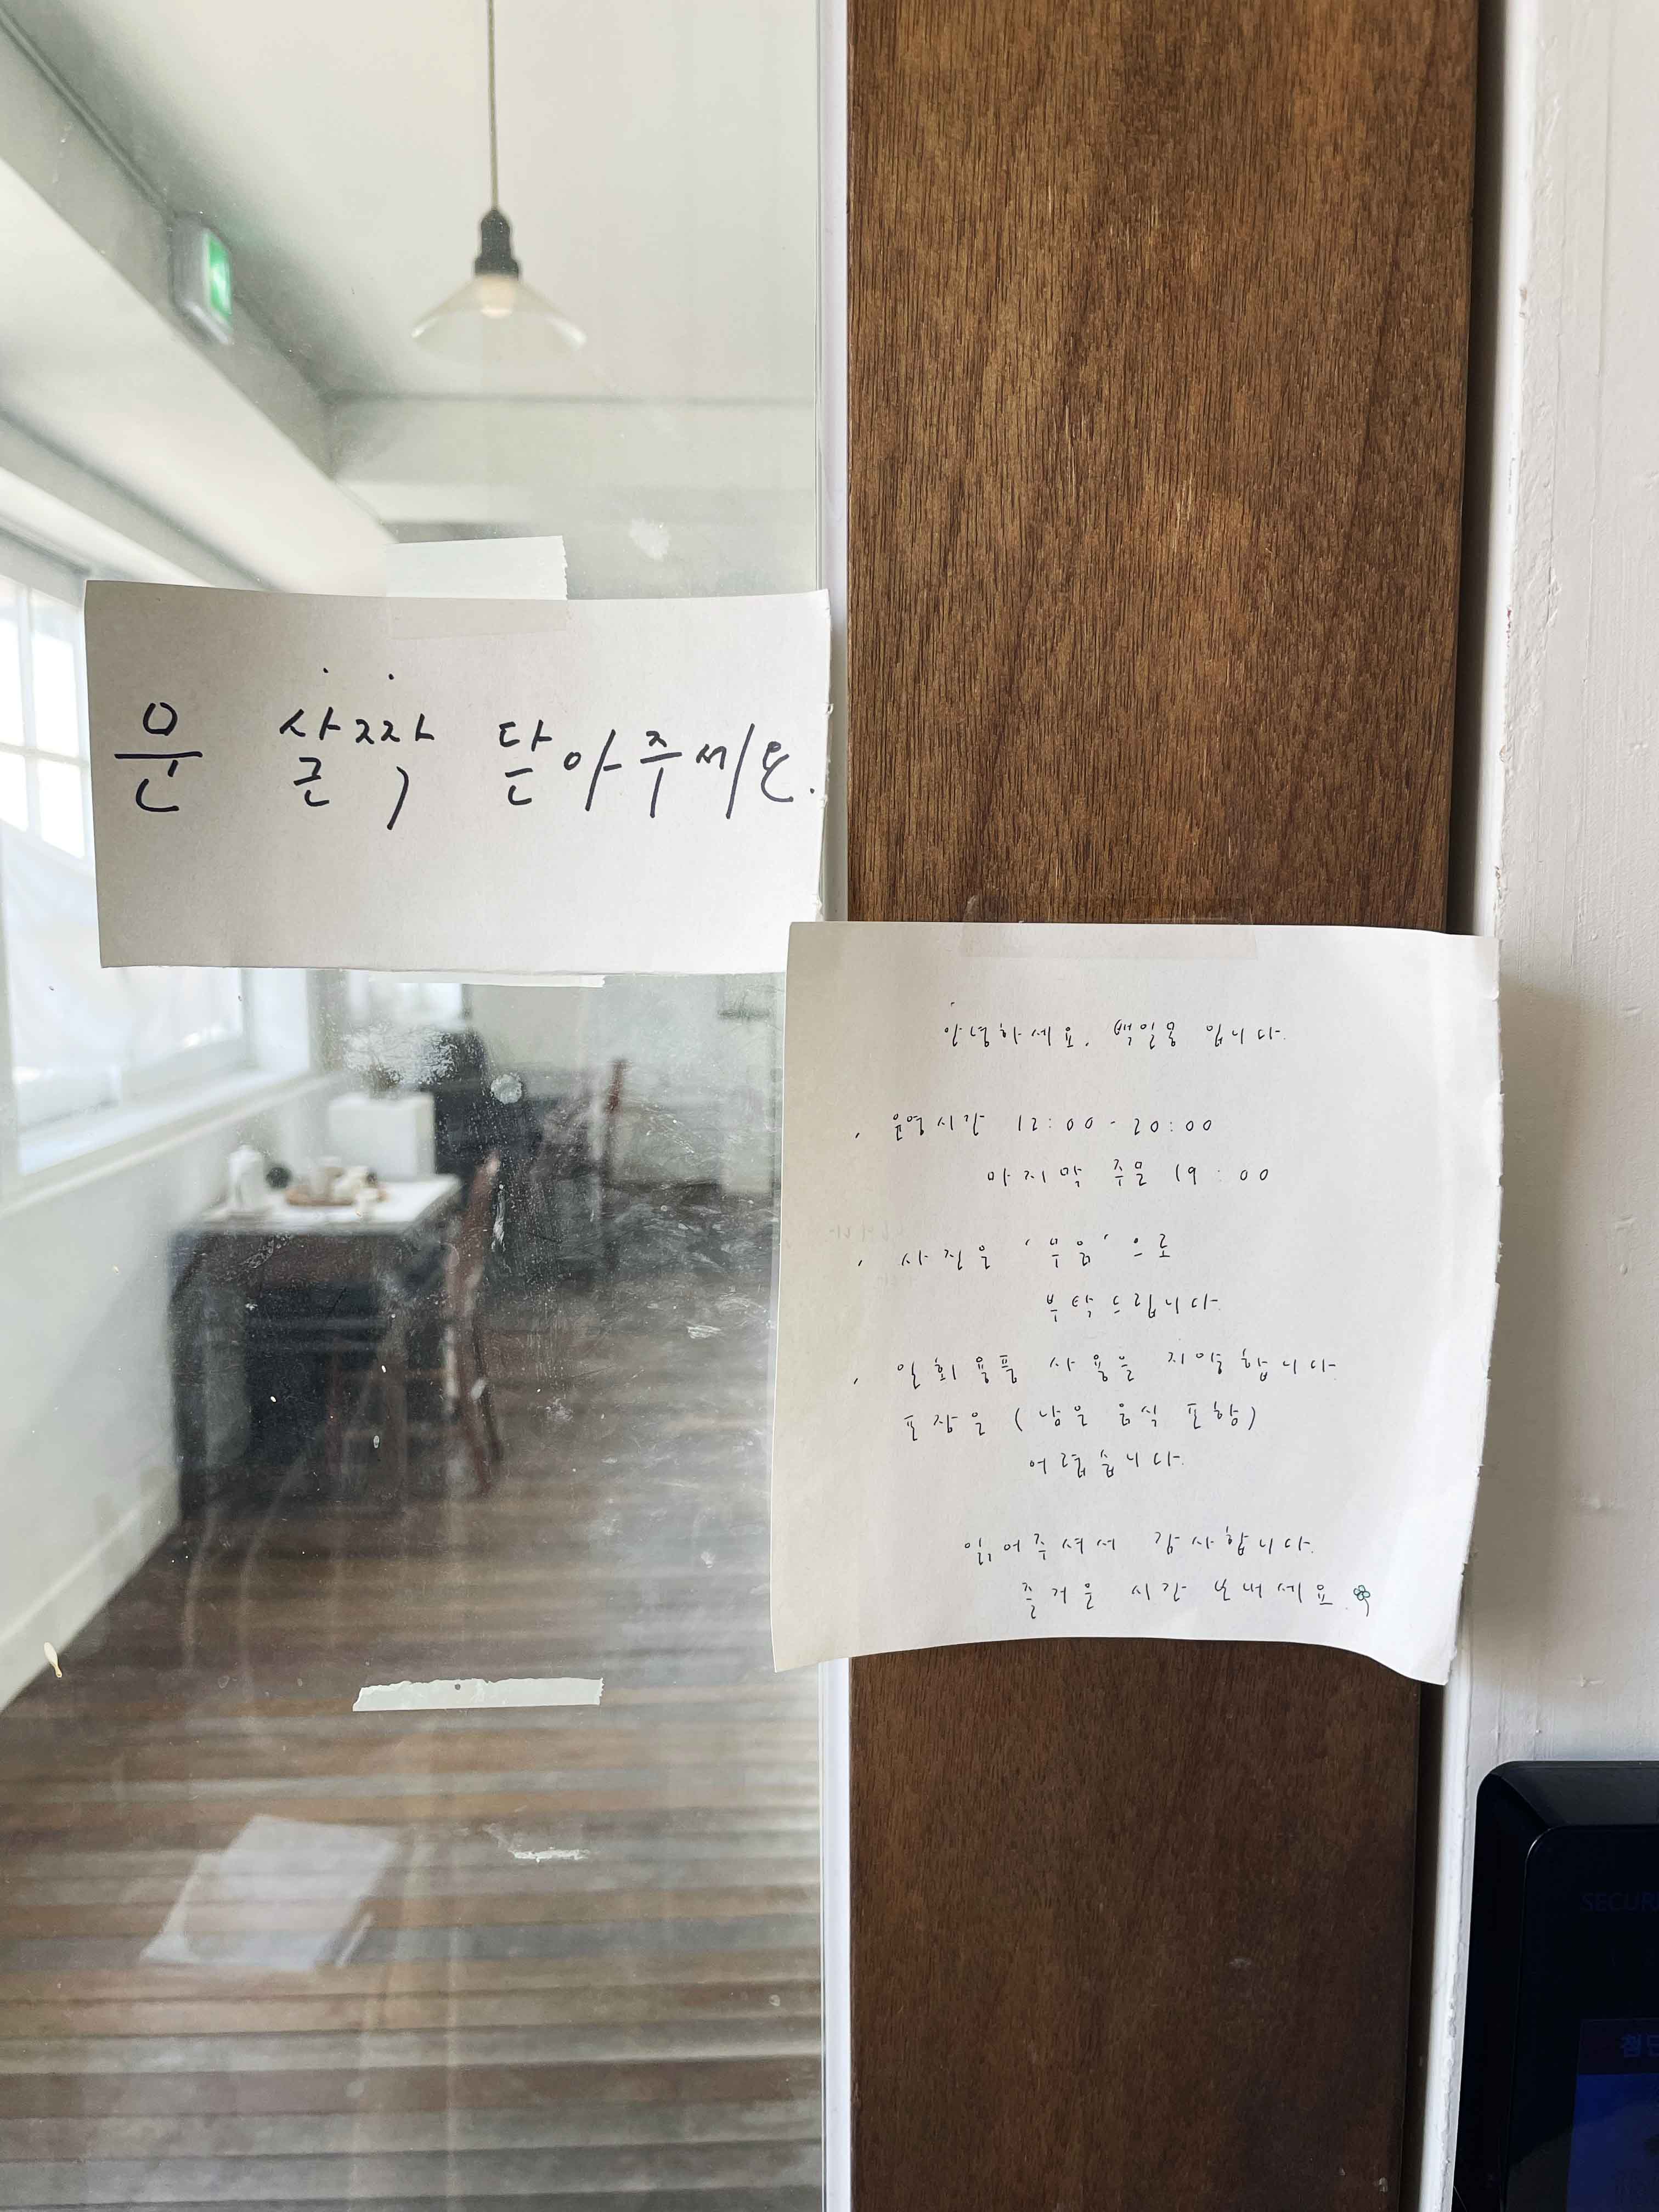 문 살짝 닫아주세요.
안녕하세요. 백일몽 입니다.
· 운영시간 12:00 - 20:00
마지막 주문 19:00
· 사진은 '무음'으로
부탁드립니다.
· 일회용품 사용을 지양합니다.
포장은 (남은 음식 포함)
어렵습니다.
읽어주셔서 감사합니다.
즐거운 시간 보내세요.